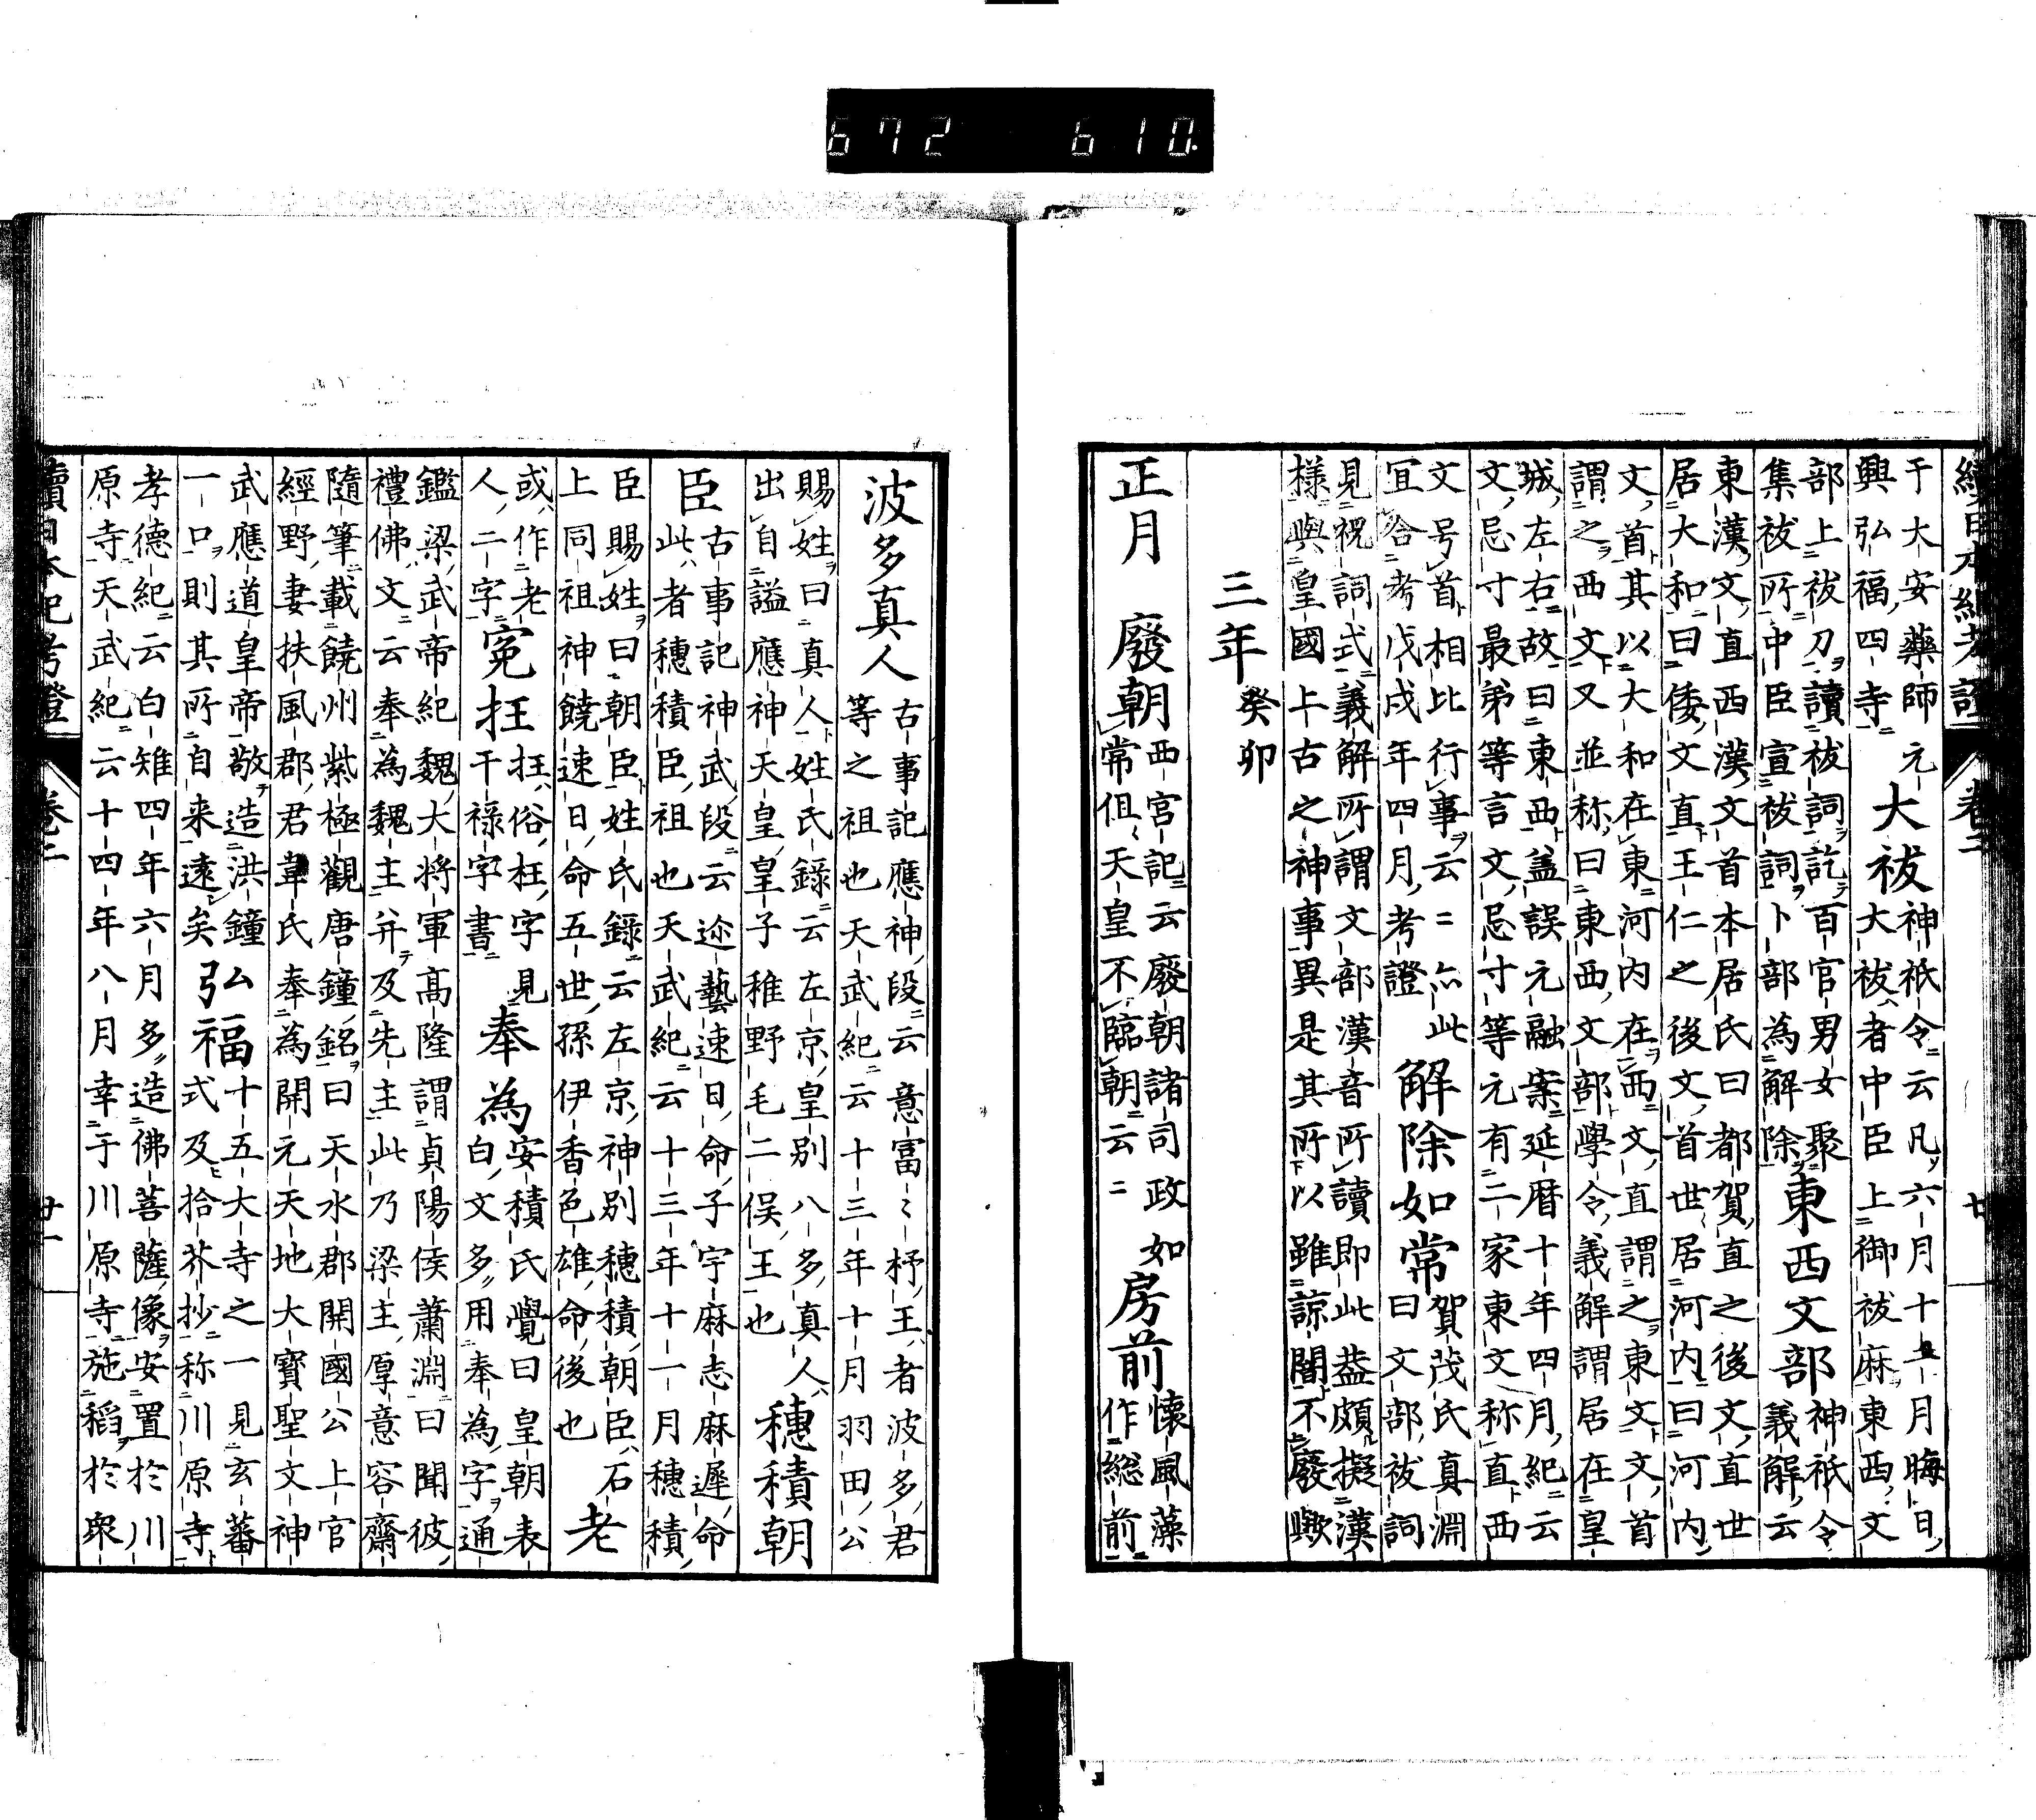 續日本紀考證 卷二 廿
于大安藥師元
興弘福四寺
大祓
神祇令云凡六月十二月晦日
大祓者中臣上御祓麻東西文
部上祓刀讀祓詞訖百官男女聚
集祓所中臣宣祓詞卜部為解除
東西文部
神祇令
義解云
東漢文直西漢文首本居氏曰都賀直之後文直世
居大和曰倭文直王仁之後文首世居河内曰河内
文首其以大和在東河内在西文直謂之東文文首
謂之西文又並称曰東西文部學令義解謂居在皇
城左右故曰東西盖誤元融案延暦十年四月紀云
文忌寸最弟等言文忌寸等元有二家東文称直西
文号首相比行事云〻亦此
宜合考戊戌年四月考證
解除如常
賀茂氏真淵
曰文部祓詞
見祝詞式義解所謂文部漢音所讀即此葢頗擬漢
様與皇國上古之神事異是其所以雖諒闇不廢歟
三年癸卯
正月 廢朝
西宮記云廢朝諸司政如
常但天皇不臨朝云〻
房前
懐風藻
作総前
波多真人
古事記應神段云意富〻杼王者波多君
等之祖也天武紀云十三年十月羽田公
賜姓曰真人姓氏錄云左京皇別八多真人
出自謚應神天皇皇子稚野毛二俣王也
穗積朝
臣
古事記神武段云迩藝速日命子宇麻志麻遲命
此者穗積臣祖也天武紀云十三年十一月穗積
臣賜姓曰朝臣姓氏錄云左京神別穗積朝臣石
上同祖神饒速日命五世孫伊香色雄命後也
老
或作老
人二字
寃抂
抂俗枉字見
干禄字書
奉為
安積氏覺曰皇朝表
白文多用奉為字通
鑑梁武帝紀魏大将軍高隆謂貞陽侯蕭淵曰聞彼
禮佛文云奉為魏主并及先主此乃梁主厚意容齋
隨筆載饒州紫極觀唐鐘銘曰天水郡開國公上官
經野妻扶風郡君韋氏奉為開元天地大寶聖文神
武應道皇帝敬造洪鐘
一口則其所自来遠矣
弘福
十五大寺之一見玄蕃
式及拾芥抄称川原寺
孝德紀云白雉四年六月多造佛菩薩像安置於川
原寺天武紀云十四年八月幸于川原寺施稻於衆
續日本紀考證 卷二 廿一